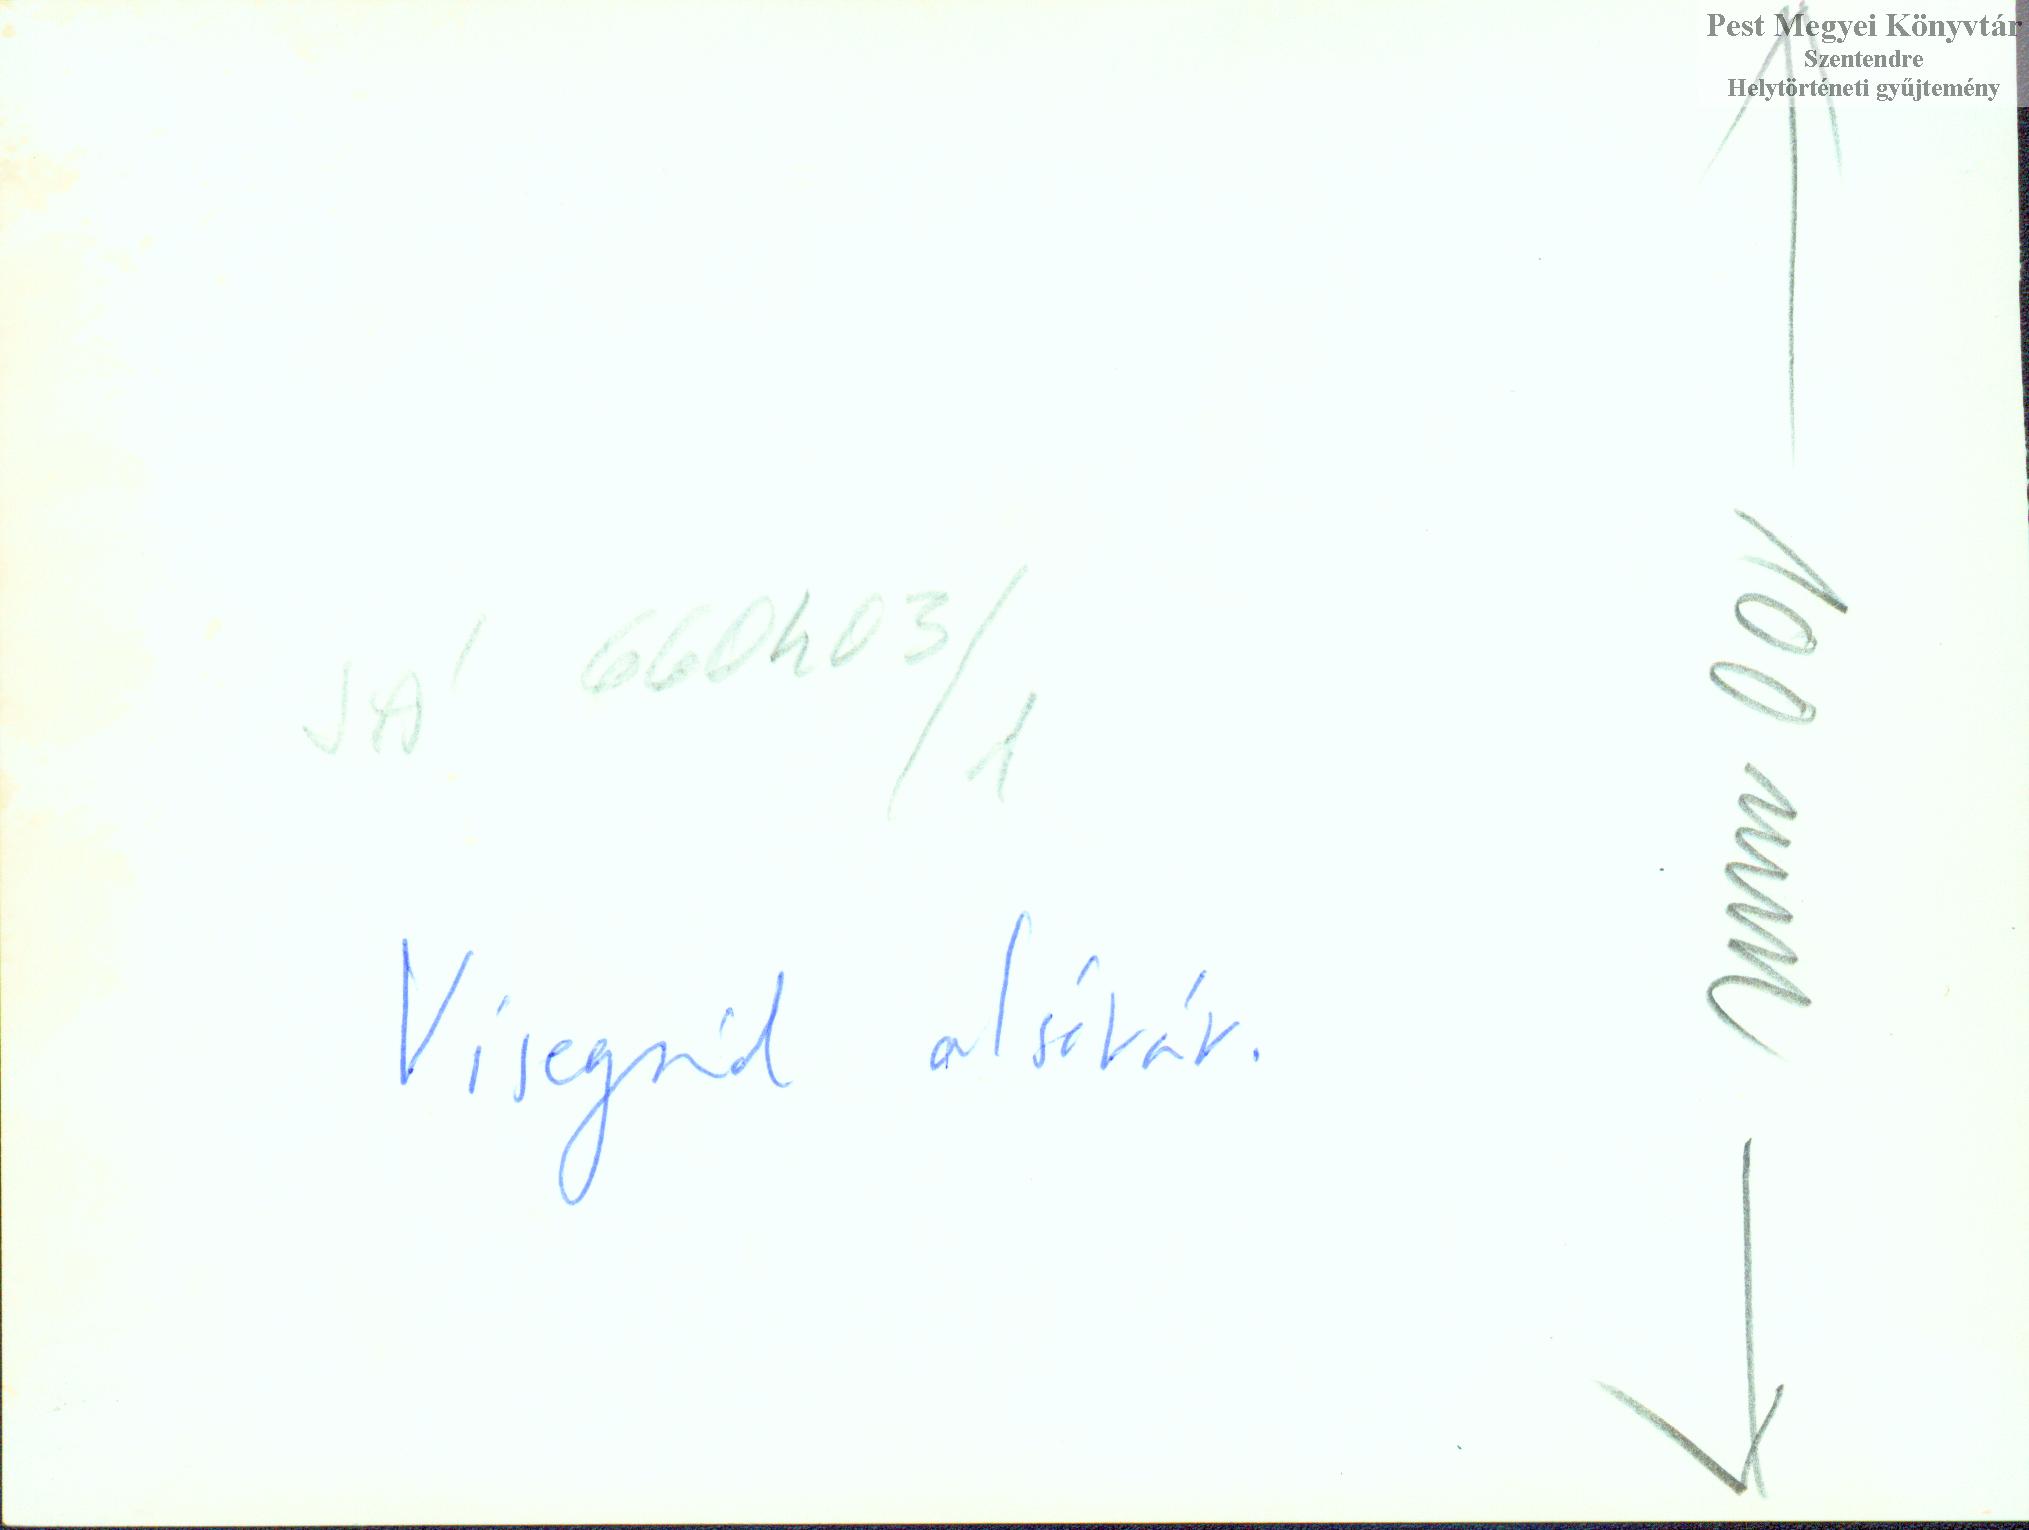 Pest Megyei Könyvtár
Szentendre
Helytörténeti gyűjtemény
JA' 660403/1
Visegrád alsóvár.
100 mm